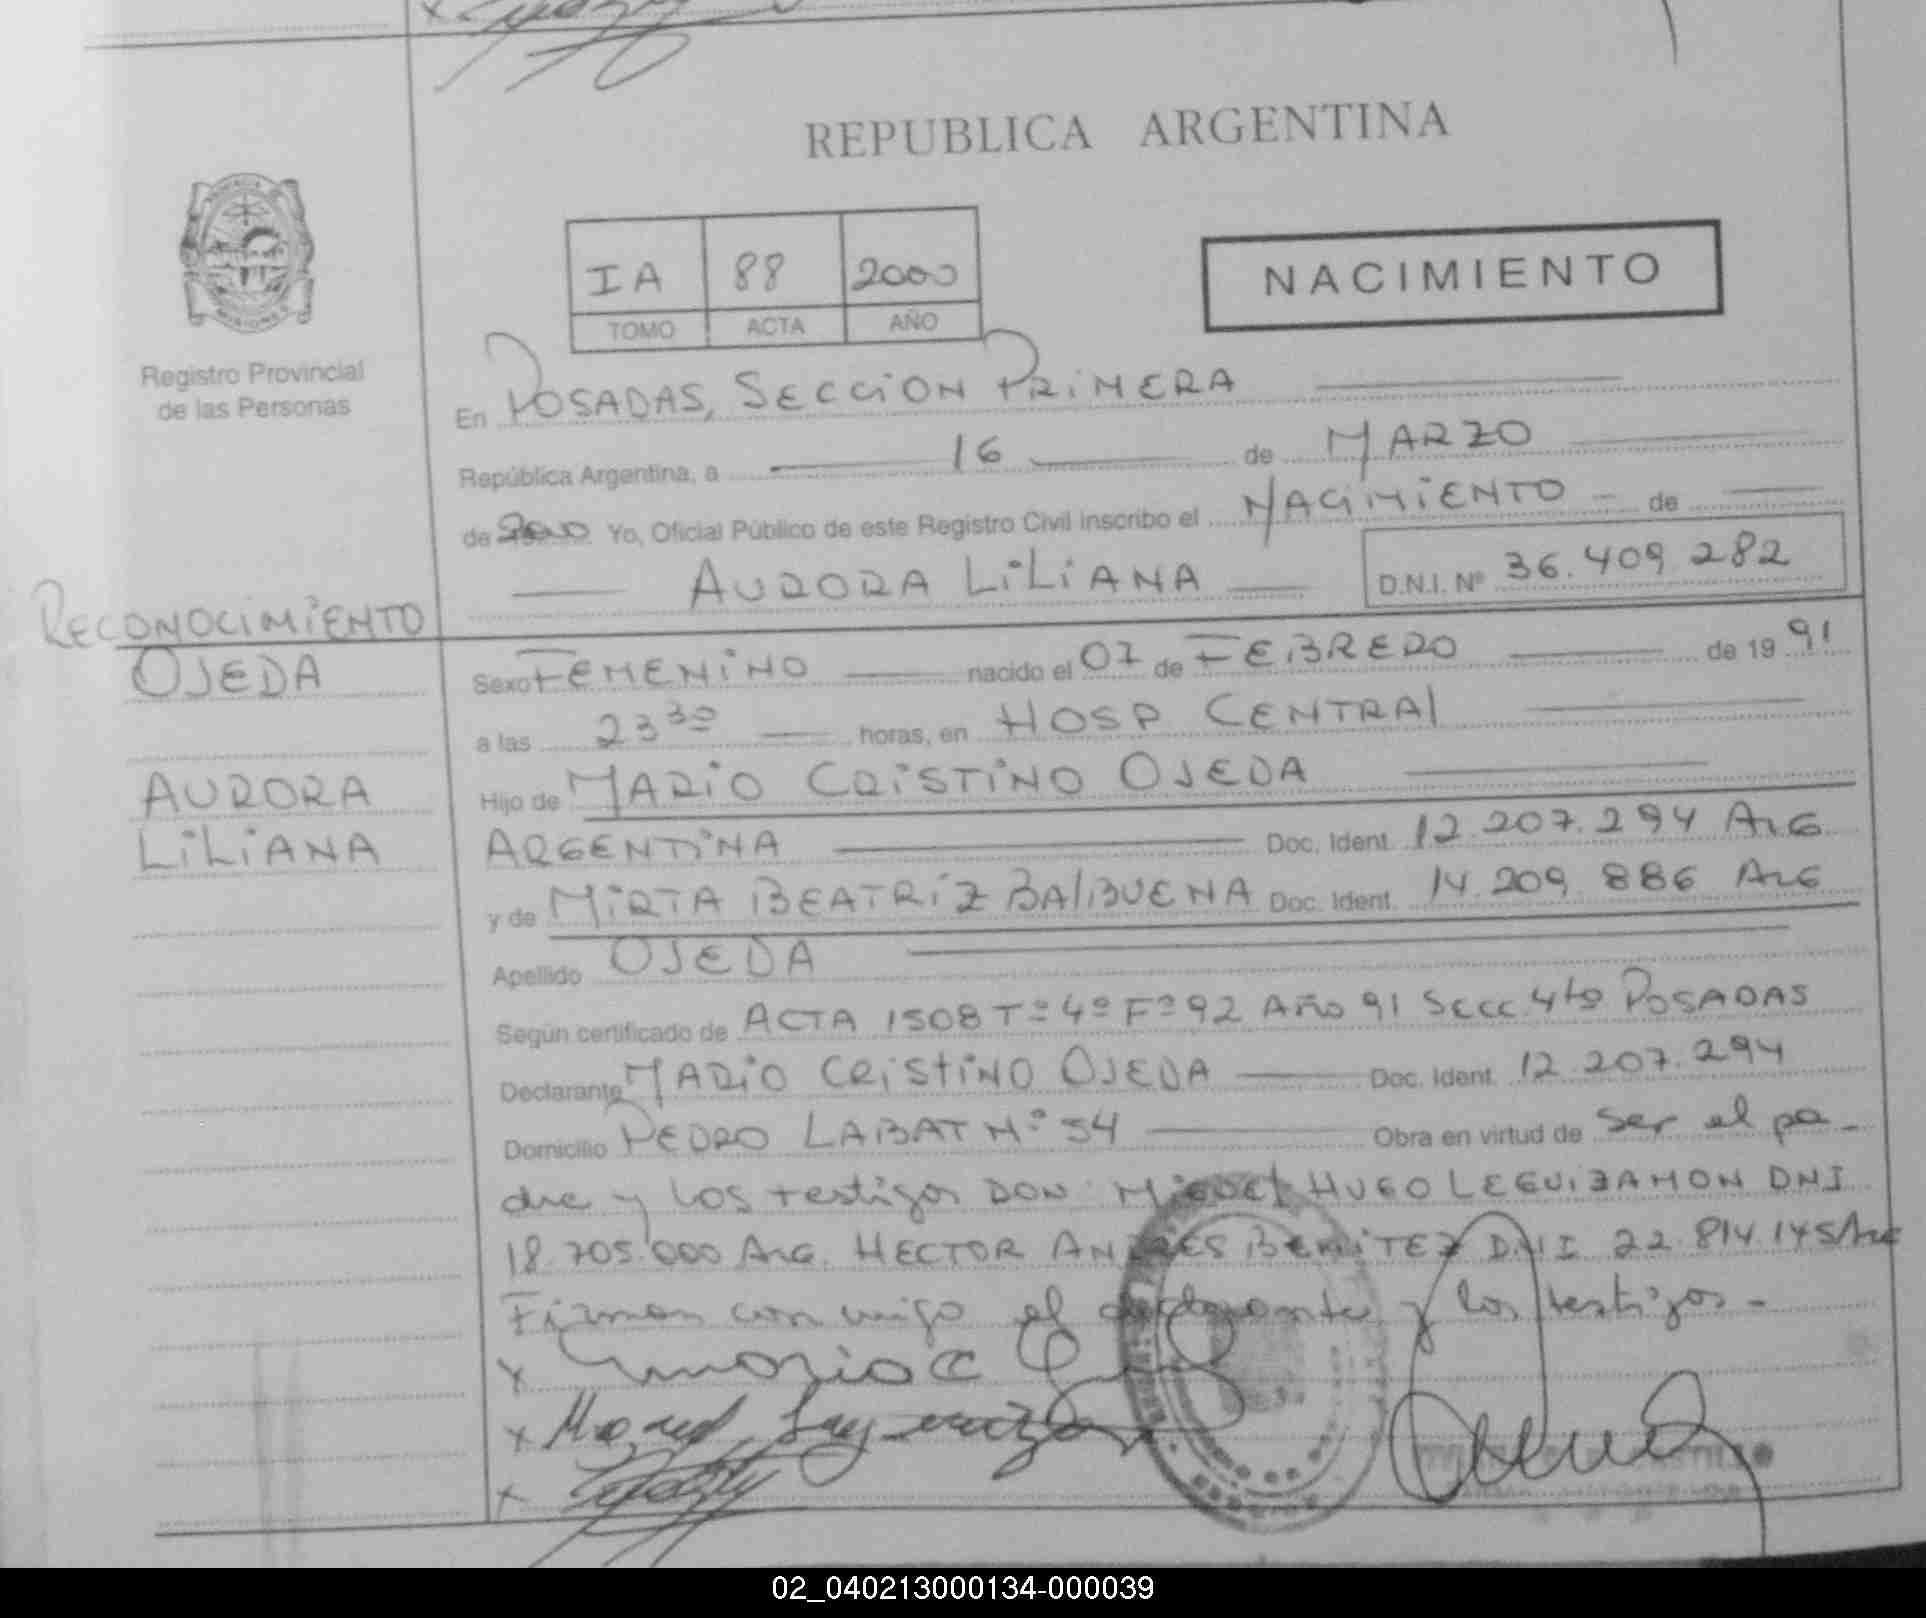 REPUBLICA ARGENTINA
IA 88 2000
TOMO ACTA AÑO
NACIMIENTO
PROVINCIA DE
MISIONES
Registro Provincial
de las Personas
En POSADAS, SECCiON PRiMERA
República Argentina, a 16 de MARZO
de 2000 Yo, Oficial Público de este Registro Civil inscribo el NACiMiENTO de
AURORA LiLiANA D.N.I. Nº 36.409.282
RECONOCiMiENTO
OJEDA
AURORA
LiLiANA
Sexo FEMENiNO nacido el 07 de FEBRERO de 19 91
a las 23 30 horas, en HOSP CENTRAl
Hijo de MARiO CRiSTiNO OJEDA
ARGENTiNA Doc. Ident. 12.207.294 ARG
y de MiRTA BEATRiZ BAlBUENA Doc. Ident. 14.209.886 ARG
Apellido OJEDA
Según certificado de ACTA 1508 Tº 4º Fº 92 AÑO 91 SECC 4tº POSADAS
Declarante MARiO CRiSTiNO OJEDA Doc. Ident. 12.207.294
Domicilio PEDRO LABAT Nº 54 Obra en virtud de ser el pa-
dre y los testigos DON MiGUEl HUGO LEGUiZAMON DNI
18.705.000 ARG. HECTOR ANDRES BENiTEZ DNI 22.814.145 Arg
Firman conmigo el declarante y los testigos-
x Mario C
x
x
02_040213000134-000039